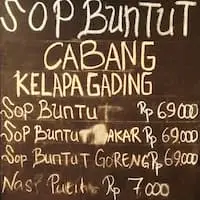 SOP BUNTUT
CABANG
KELAPA GADING
SOP BUNTUT Rp 69.000
SOP BUNTUT BAKAR Rp 69.000
SOP BUNTUT GORENG Rp 69.000
Nasi Putih Rp 7.000